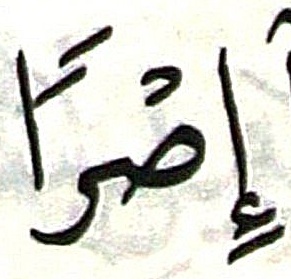 إِصْرًا